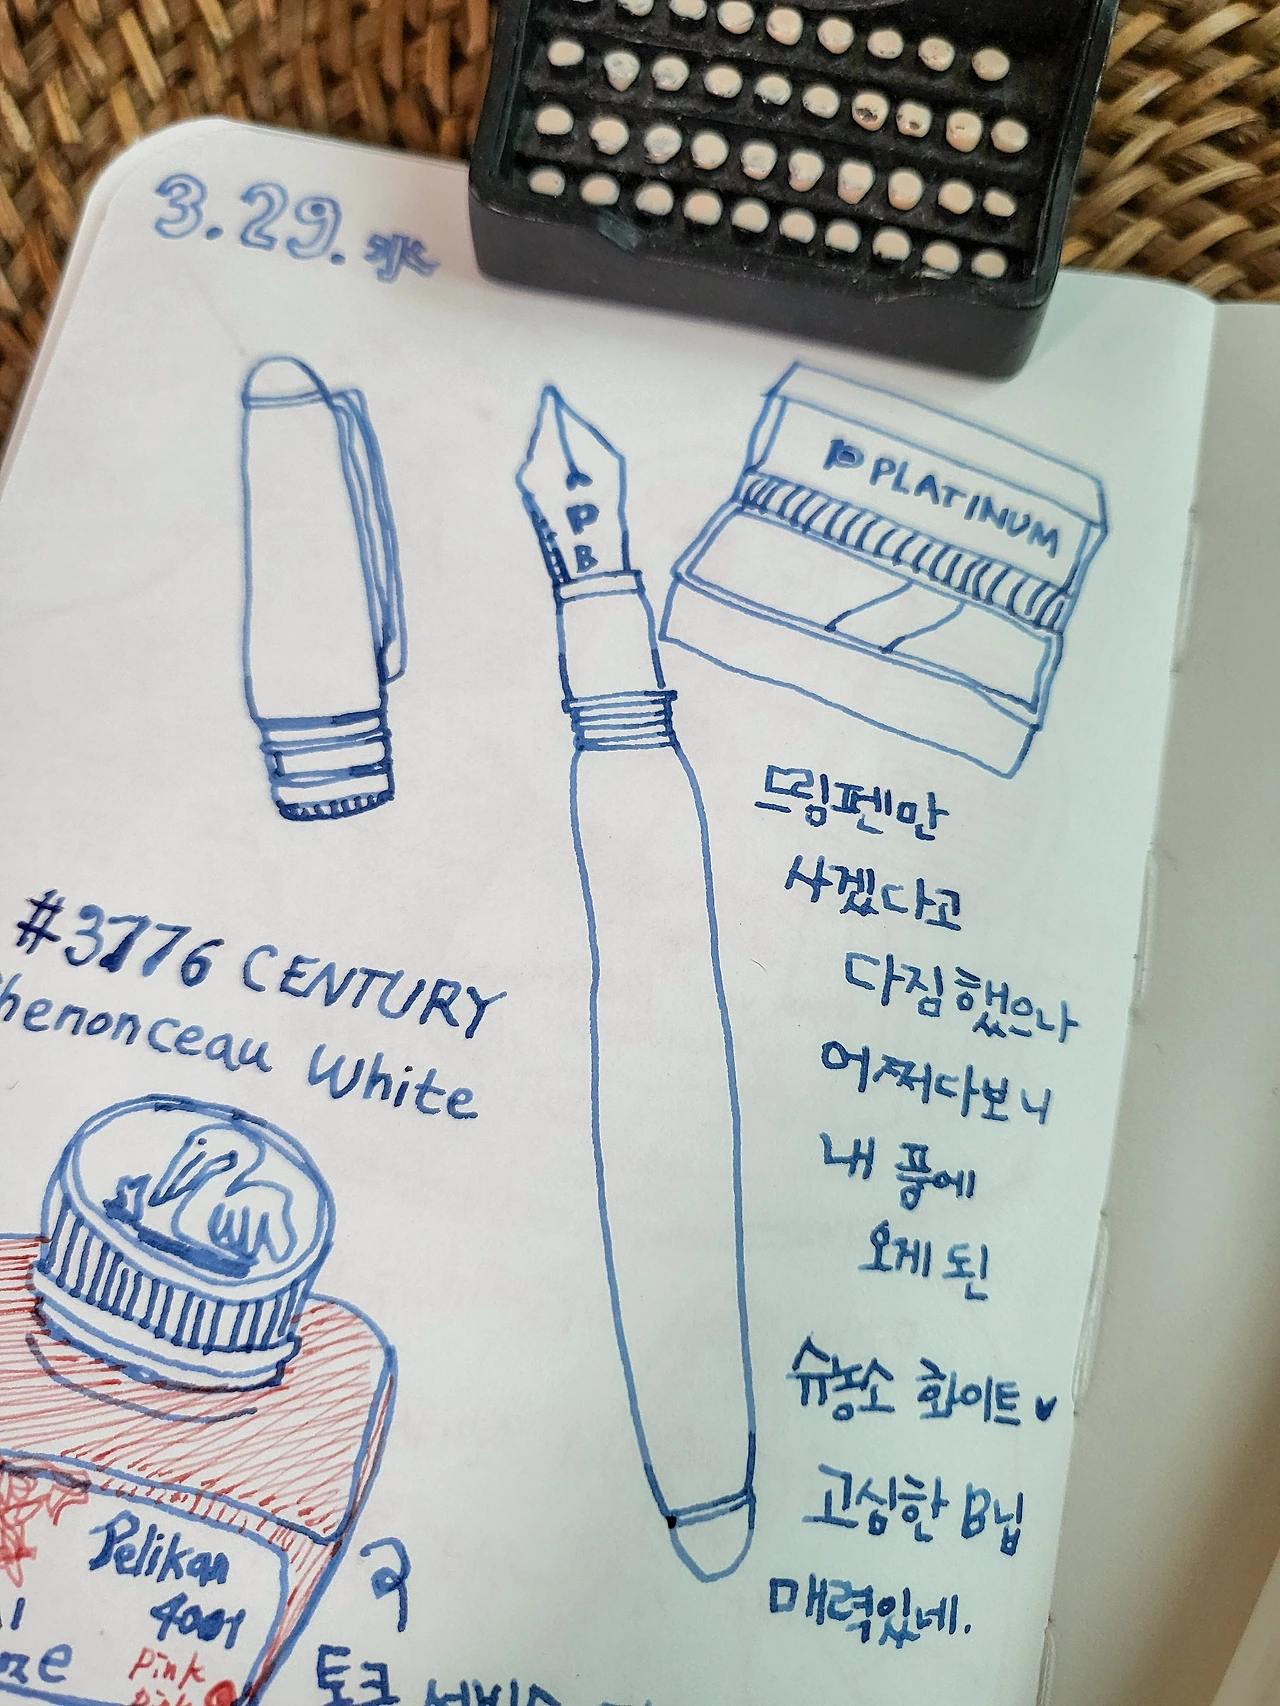 3.29. 水
P PLATINUM
P
B
드림펜만
사겠다고
다짐했으나
어쩌다보니
내 품에
오게 된
슈농소 화이트
고심한 B닙
매력있네.
#3776 CENTURY
henonceau White
Pelikan
4001
pink
토크